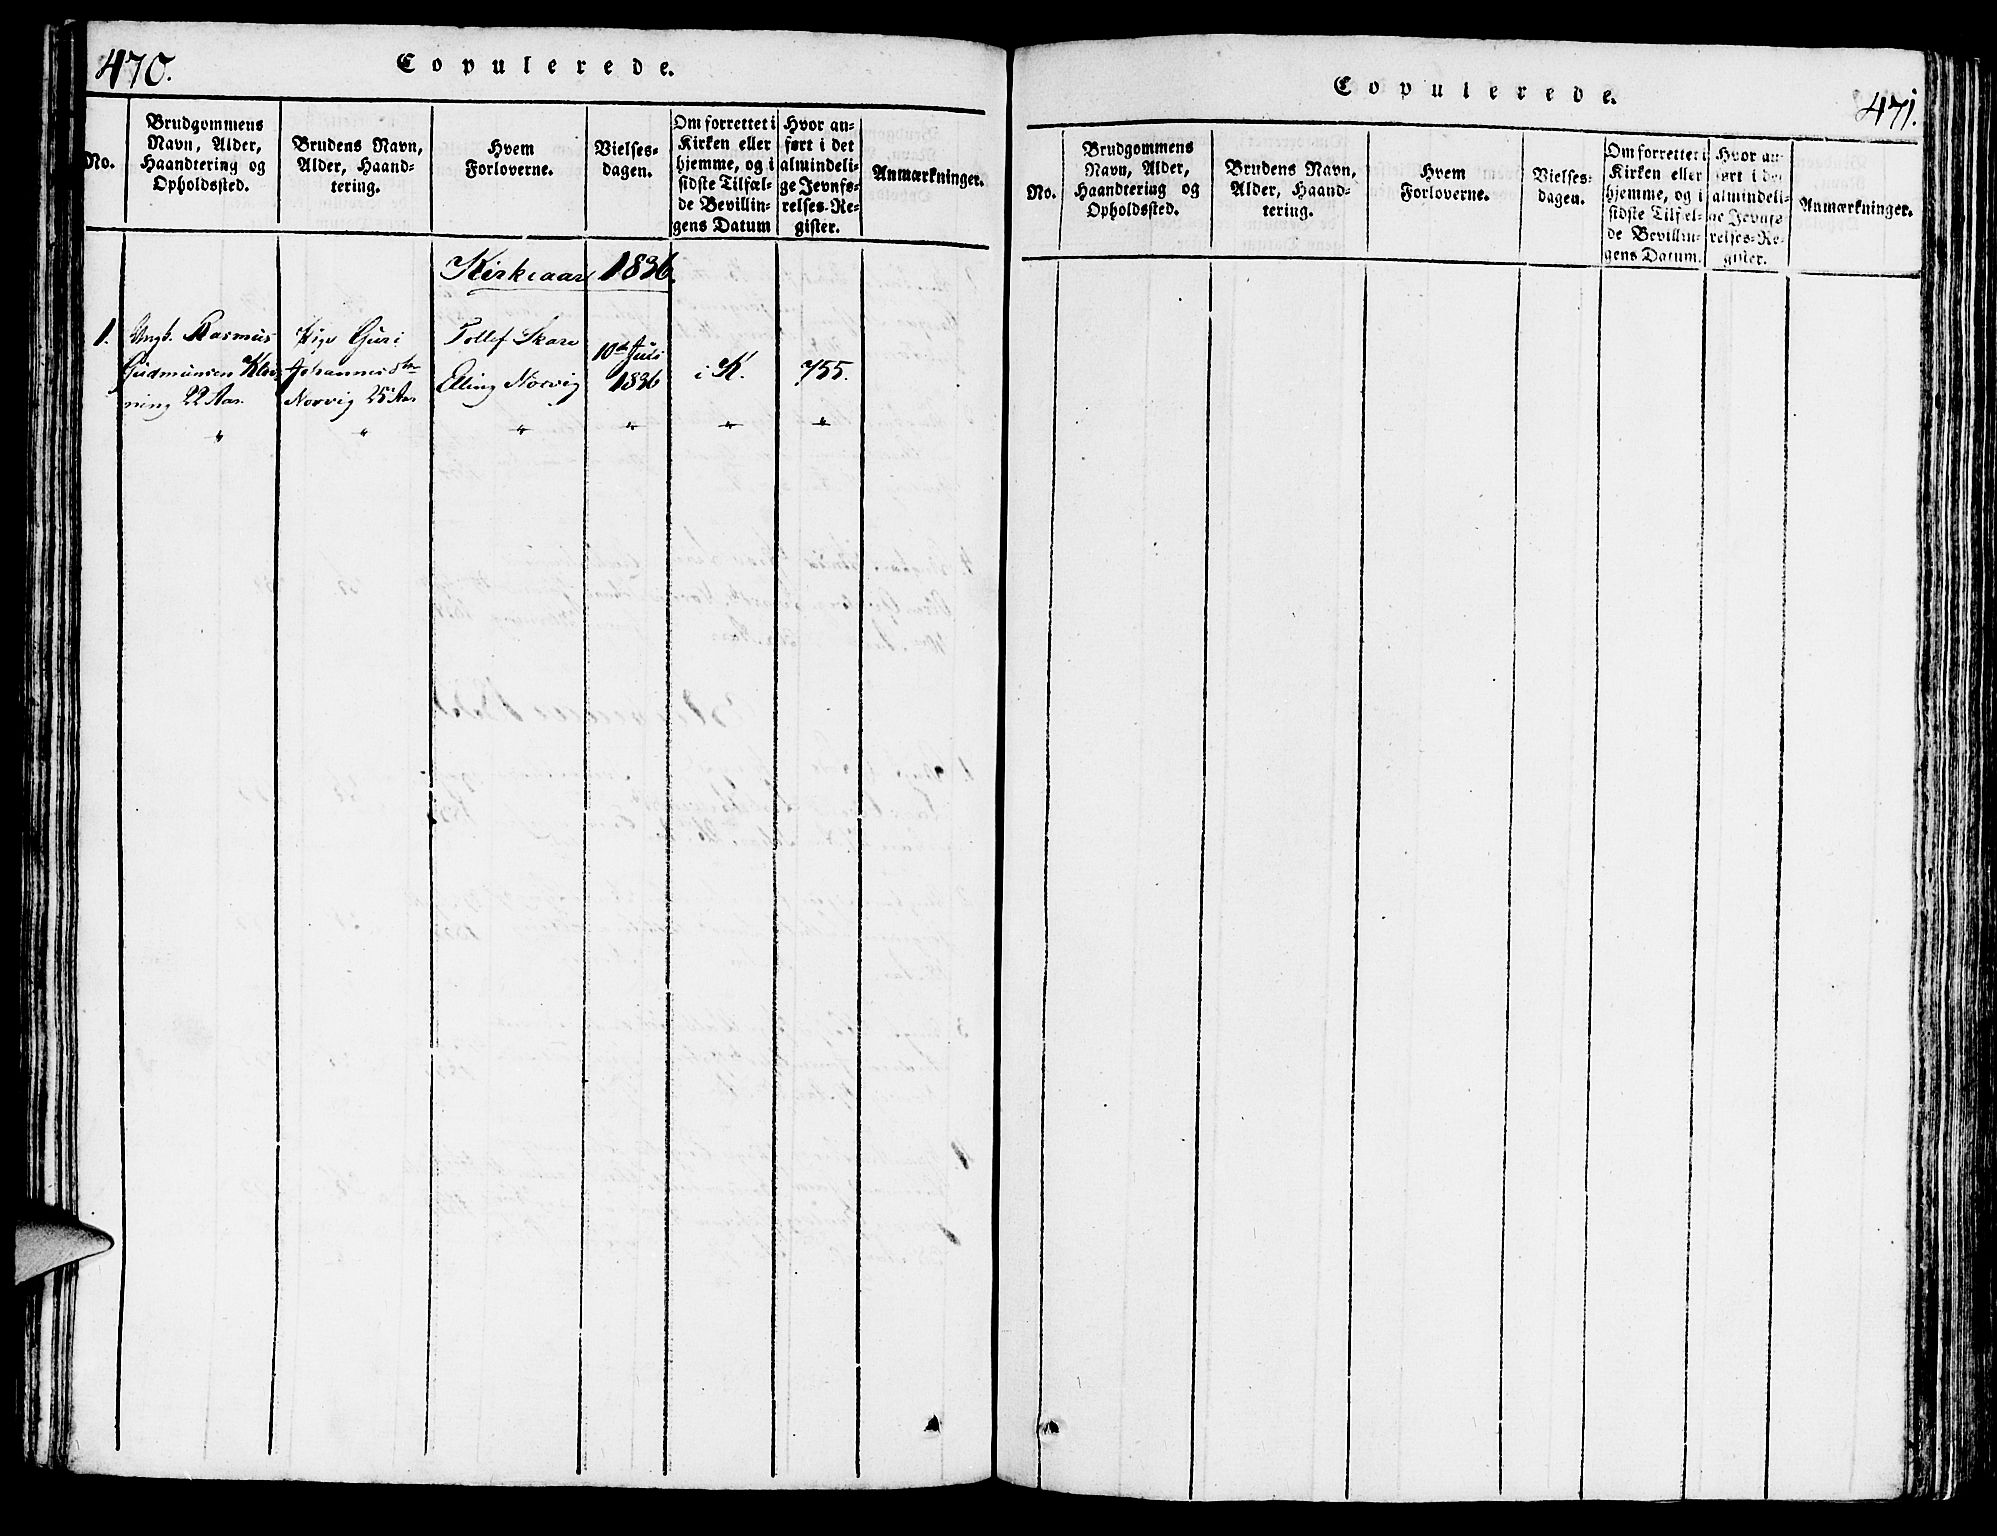 470.
Copulerede.
No.
Brudgommens
Navn, Alder,
Haandtering og
Opholdssted.
Brudens Navn,
Alder, Haand-
tering.
Hvem
Forloverne.
Vielses-
dagen.
Om forrettet i
Kirken eller
hjemme, og i
sidste Tilfæl-
de Bevillin-
gens Datum
Hvor an-
ført i det
almindeli-
ge Jevnfø-
relses-Re-
gister.
Anmærkninger.
Kirkeaar 1836.
1.
Ungk. Rasmus
Gudmunsen
ning 22 Aar.
"
Pige Guri
Johannesdtr
Norvig 25 Aar
"
Tollef Skare
Elling Norvig
"
10de Juli
1836
"
i K.
"
755.
"
Copulerede.
471.
No.
Brudgommens
Navn, Alder,
Haandtering og
Opholdssted.
Brudens Navn,
Alder, Haand-
tering.
Hvem
Forloverne.
Vielses-
dagen.
Om forrettet i
Kirken eller
hjemme, og i
sidste Tilfæl-
de Bevillin-
gens Datum.
Hvor an-
ført i det
almindeli-
ge Jevnfø-
relses-Re-
gister.
Anmærkninger.